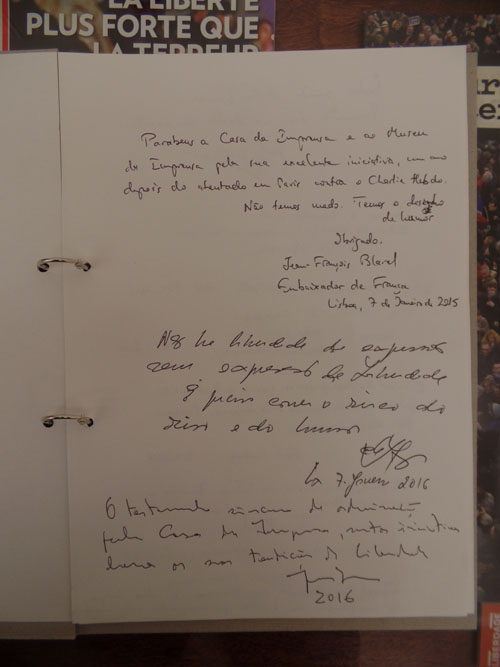 LA LIBERTÉ
PLUS FORTE QUE
LA TERREUR
Parabens a Casa da Imprensa e ao Museu
da Imprensa pela sua excelente iniciativa, um ano
depois do atentado em Paris contra o Charlie Hebdo.
Não temos medo. Temos o desenho
de humor
Obrigado.
Jean-François Blarel
Embaixador de França
Lisboa, 7 de Janeiro de 2015
Não há liberdade de expressão
sem expressão da liberdade
É preciso correr o risco do
riso e do humor
Lx 7. Janeiro 2016
O testemunho sincero de admiração
pela Casa da Imprensa, nesta iniciativa
2016